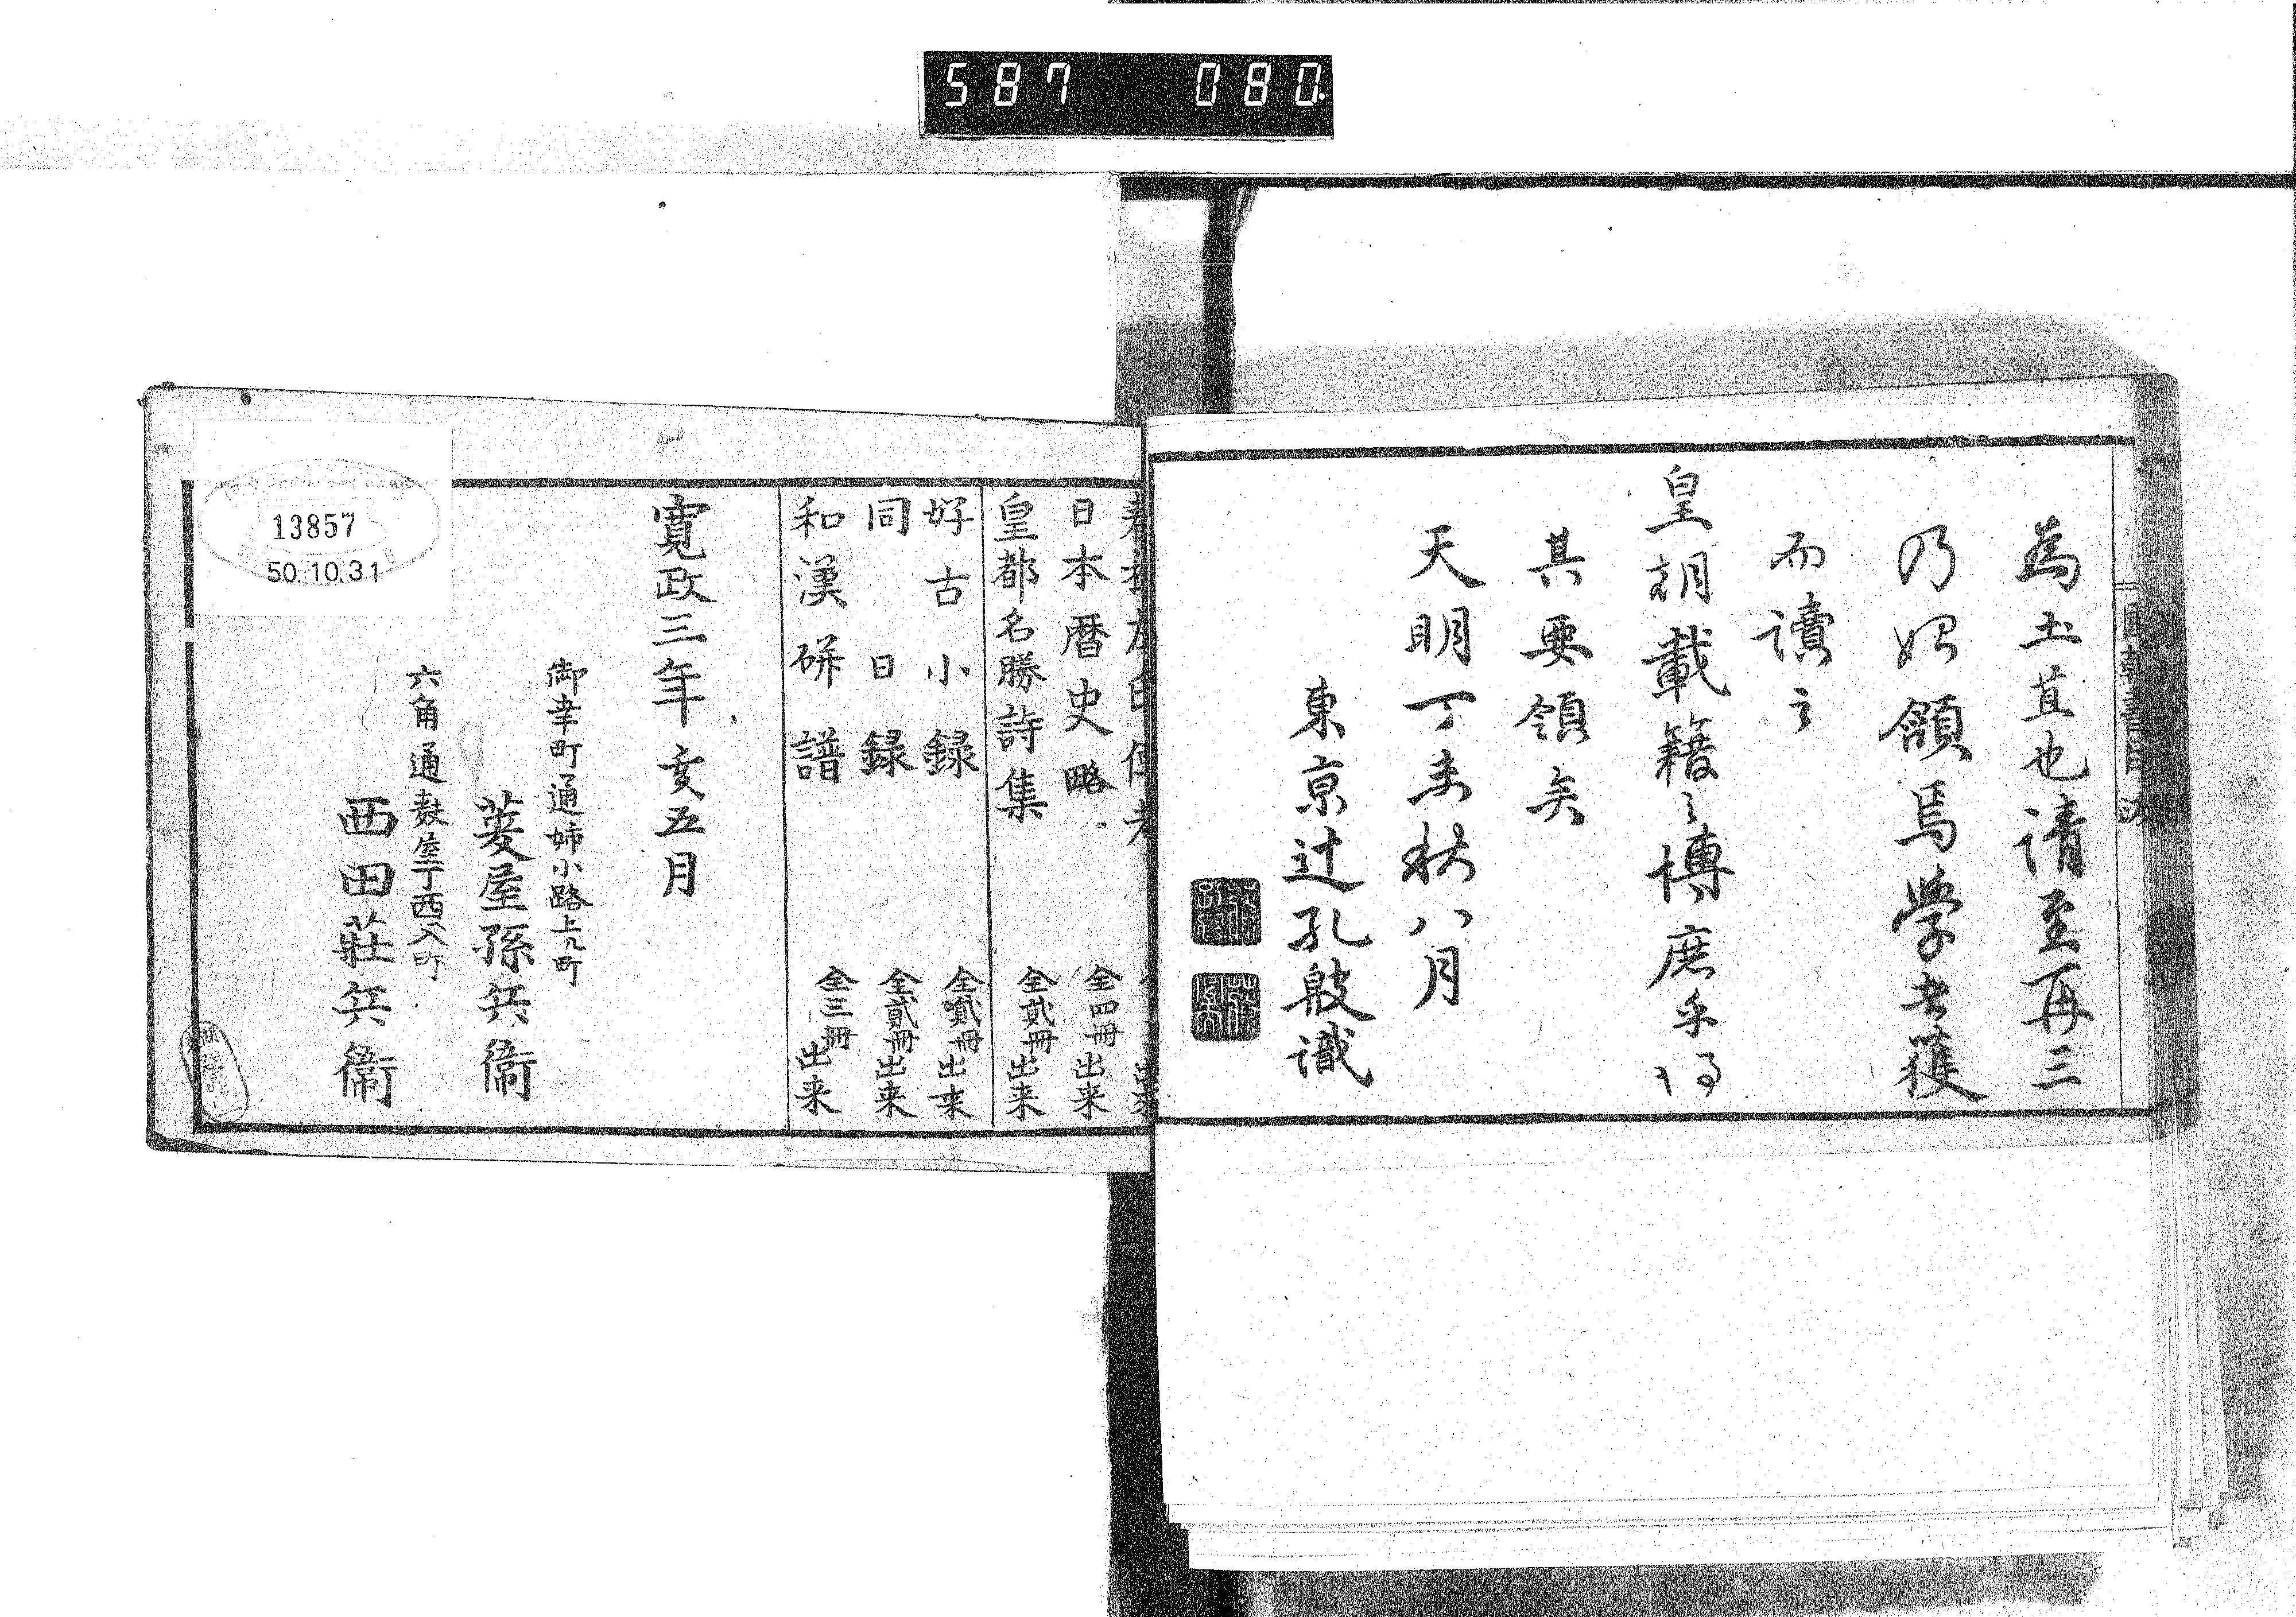 587 080
為土苴也請至再三
乃始頷焉学者獲
而讀之
皇朝載籍之博庶乎得
其要領矣
天明丁未秋八月
東京辻孔殷識
日本暦史略 全四冊出来
皇都名勝詩集 全貳冊出来
好古小録 全貳冊出来
同日録 全貳冊出来
和漢硑譜 全三冊出来
寛政三年亥五月
御幸町通姉小路上ル町
菱屋孫兵衞
六角通麸屋丁西入町
西田莊兵衞
13857
50.10.31